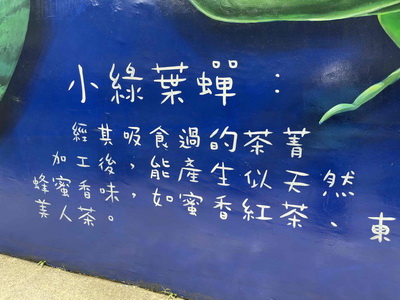 小綠葉蟬：
經其吸食過的茶菁
加工後，能產生似天然
蜂蜜香味，如蜜香紅茶、東
美人茶。